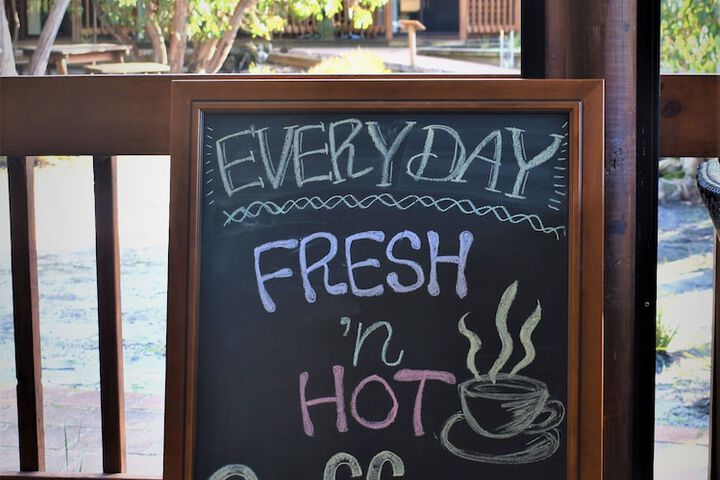 EVERYDAY
FRESH
'n
HOT